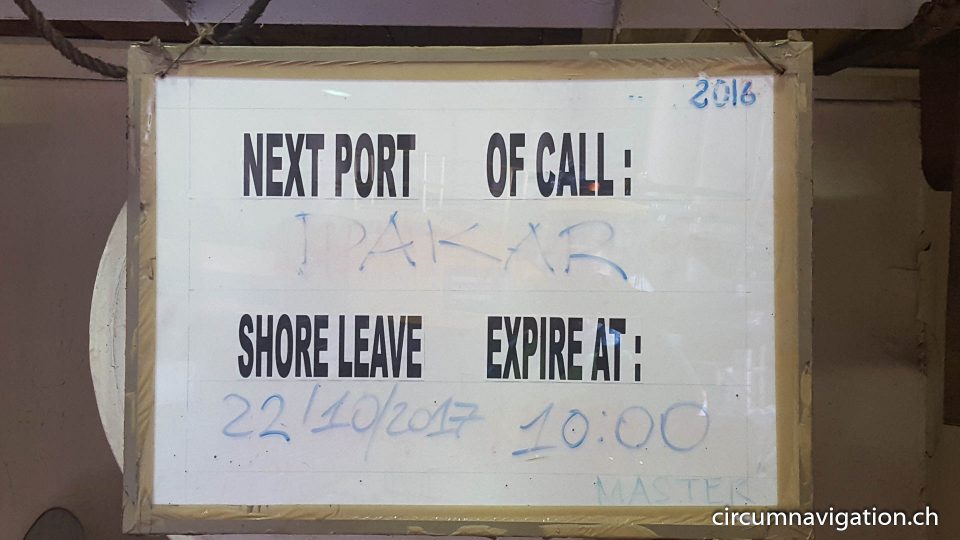 2016
NEXT PORT OF CALL :
DAKAR
SHORE LEAVE EXPIRE AT :
22/10/2017 10:00
MASTER
circumnavigation.ch